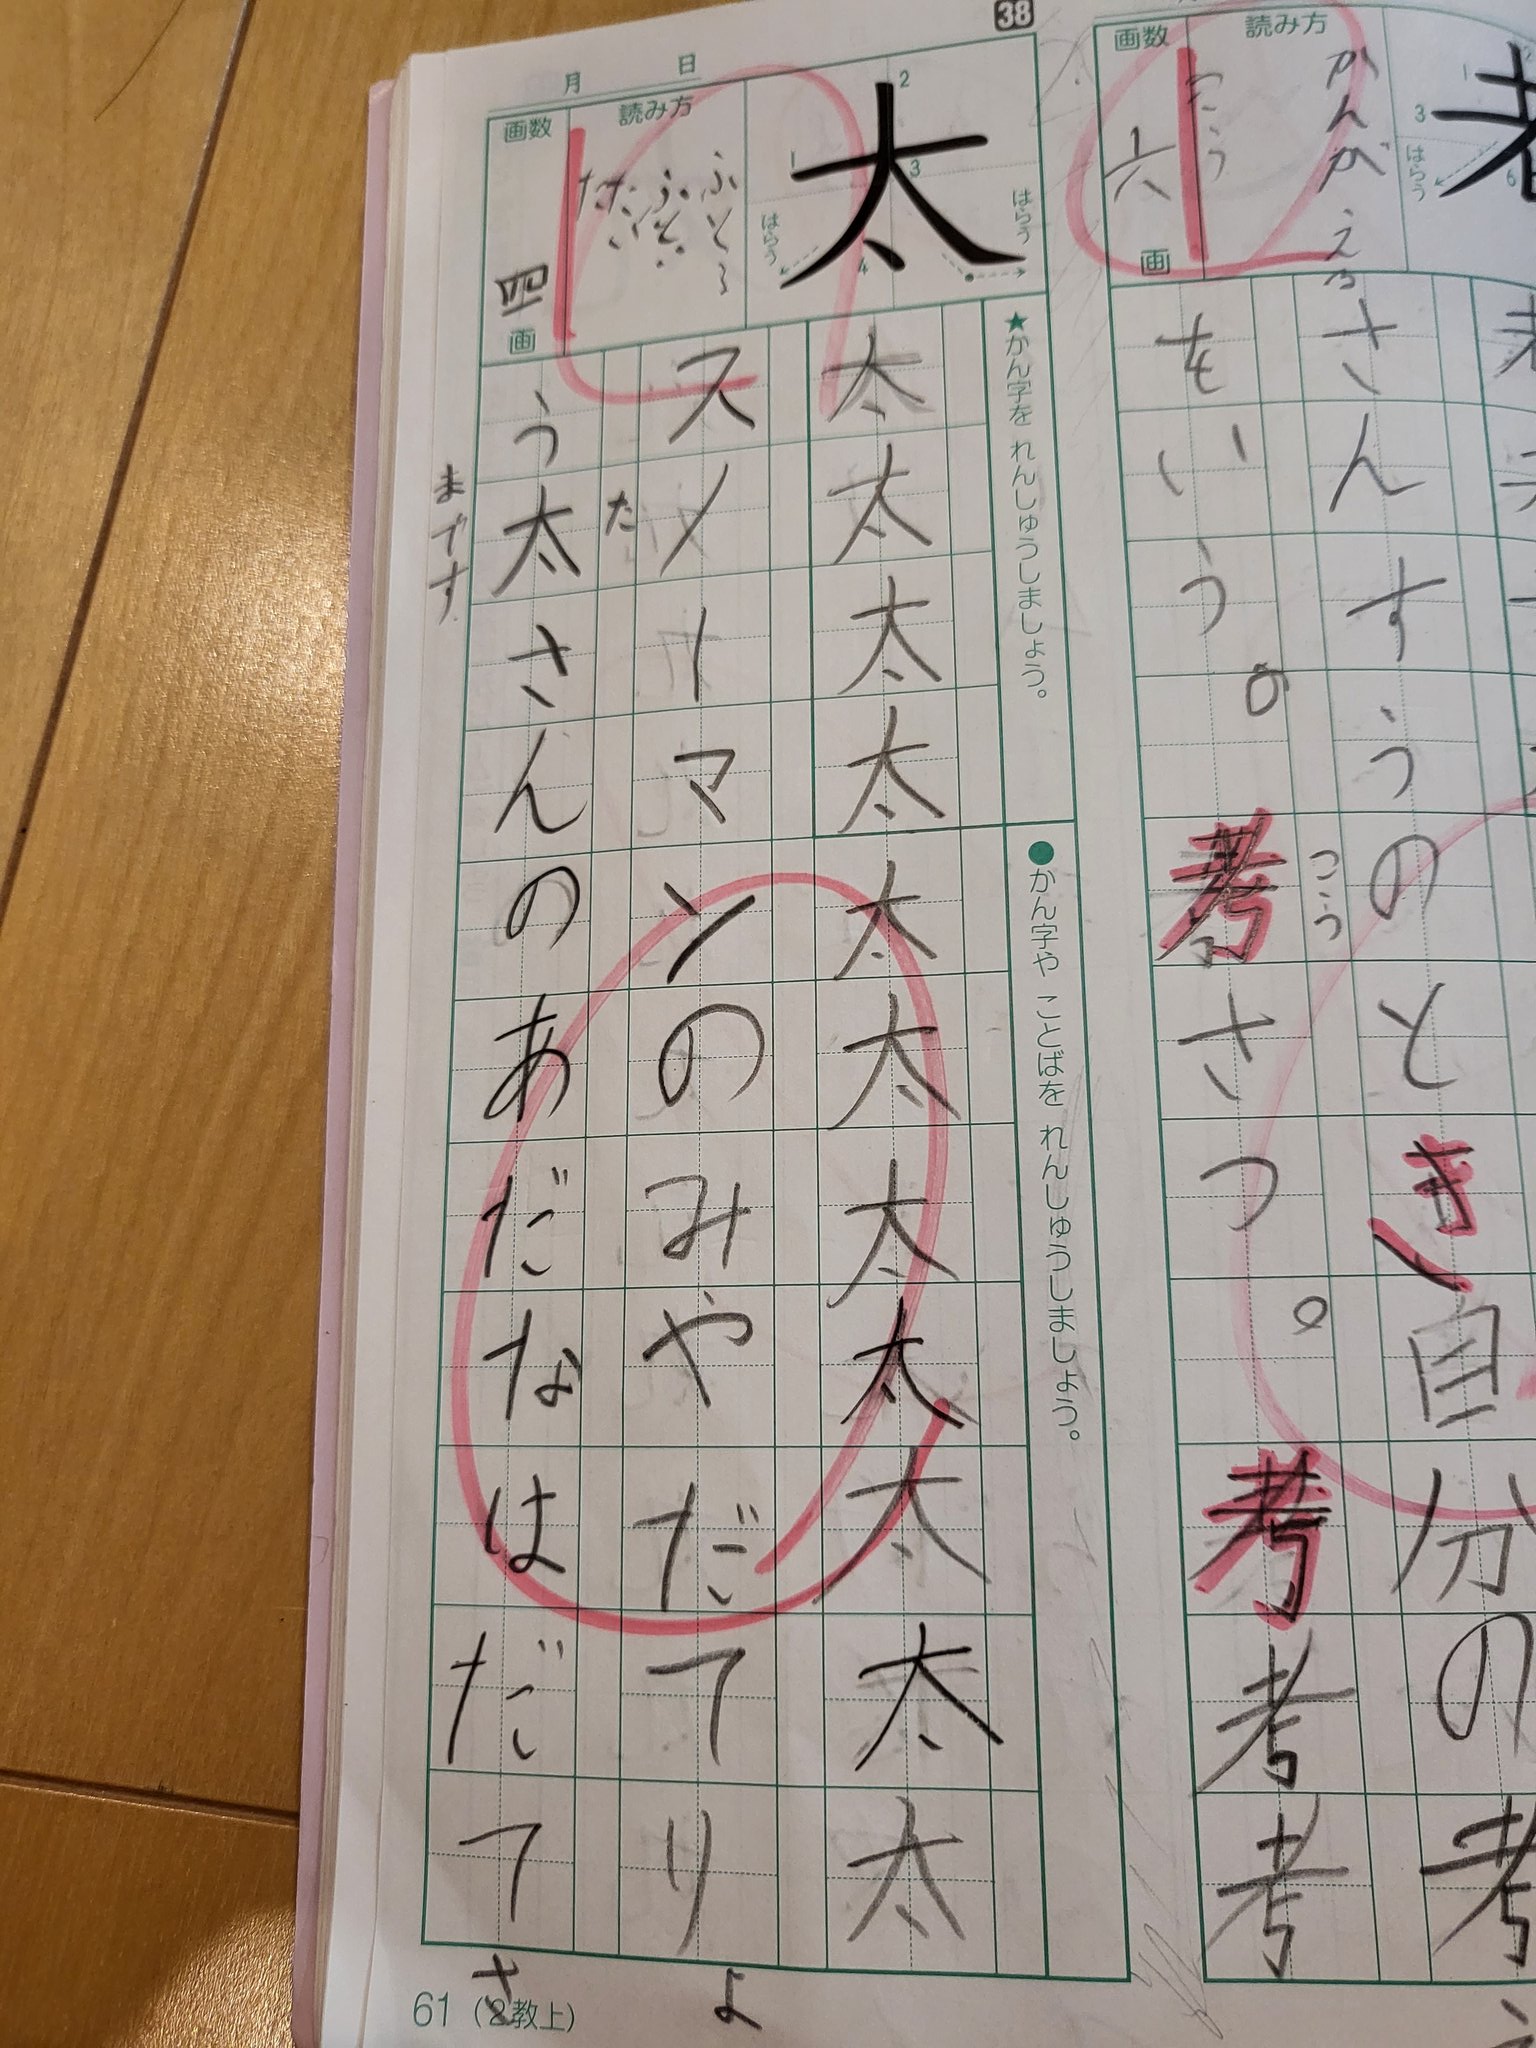 38
画数
読み方
かんがえる
こう
六
画
1
3
6
はらう
さんすうのとき自分の考
をいう。考さつ。考考考
こう
月 日
太
1
2
3
4
はらう
はらう
読み方
ふとる
ふとい
た
たい
画数
四
画
★かん字を れんしゅうしましょう。
●かん字や ことばを れんしゅうしましょう。
太太太太太太太太太太太
スノーマンのみやだてりょ
う太さんのあだなはだてさ
た
まです
61 (2教上)